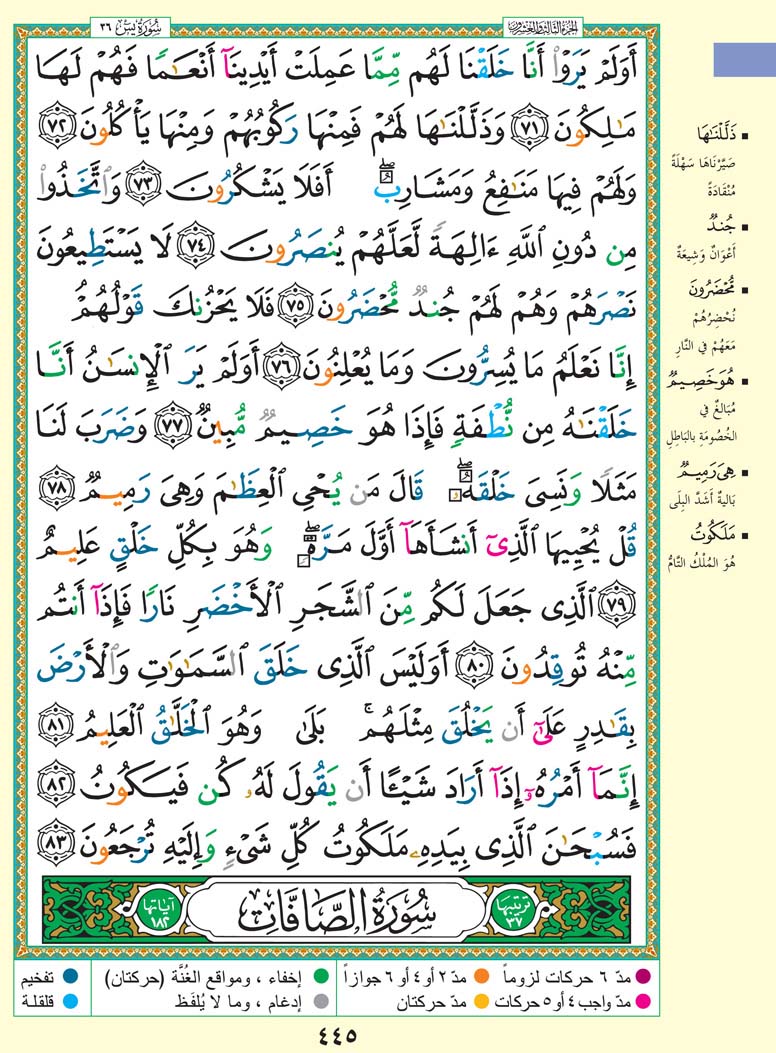 الجُزءُ الثَّالِثُ وَالعِشْرُون
سُورَةُ يسٓ ٣٦
أَوَلَمْ يَرَوْا۟ أَنَّا خَلَقْنَا لَهُم مِّمَّا عَمِلَتْ أَيْدِينَآ أَنْعَـٰمًا فَهُمْ لَهَا
مَـٰلِكُونَ ٧١ وَذَلَّلْنَـٰهَا لَهُمْ فَمِنْهَا رَكُوبُهُمْ وَمِنْهَا يَأْكُلُونَ ٧٢
وَلَهُمْ فِيهَا مَنَـٰفِعُ وَمَشَارِبُ ۖ أَفَلَا يَشْكُرُونَ ٧٣ وَٱتَّخَذُوا۟
مِن دُونِ ٱللَّهِ ءَالِهَةً لَّعَلَّهُمْ يُنصَرُونَ ٧٤ لَا يَسْتَطِيعُونَ
نَصْرَهُمْ وَهُمْ لَهُمْ جُندٌ مُّحْضَرُونَ ٧٥ فَلَا يَحْزُنكَ قَوْلُهُمْ
إِنَّا نَعْلَمُ مَا يُسِرُّونَ وَمَا يُعْلِنُونَ ٧٦ أَوَلَمْ يَرَ ٱلْإِنسَـٰنُ أَنَّا
خَلَقْنَـٰهُ مِن نُّطْفَةٍ فَإِذَا هُوَ خَصِيمٌ مُّبِينٌ ٧٧ وَضَرَبَ لَنَا
مَثَلًا وَنَسِىَ خَلْقَهُۥ ۖ قَالَ مَن يُحْىِ ٱلْعِظَـٰمَ وَهِىَ رَمِيمٌ ٧٨
قُلْ يُحْيِيهَا ٱلَّذِىٓ أَنشَأَهَآ أَوَّلَ مَرَّةٍ ۖ وَهُوَ بِكُلِّ خَلْقٍ عَلِيمٌ
٧٩ ٱلَّذِى جَعَلَ لَكُم مِّنَ ٱلشَّجَرِ ٱلْأَخْضَرِ نَارًا فَإِذَآ أَنتُم
مِّنْهُ تُوقِدُونَ ٨٠ أَوَلَيْسَ ٱلَّذِى خَلَقَ ٱلسَّمَـٰوَٰتِ وَٱلْأَرْضَ
بِقَـٰدِرٍ عَلَىٰٓ أَن يَخْلُقَ مِثْلَهُم ۚ بَلَىٰ وَهُوَ ٱلْخَلَّـٰقُ ٱلْعَلِيمُ ٨١
إِنَّمَآ أَمْرُهُۥٓ إِذَآ أَرَادَ شَيْـًٔا أَن يَقُولَ لَهُۥ كُن فَيَكُونُ ٨٢
فَسُبْحَـٰنَ ٱلَّذِى بِيَدِهِۦ مَلَكُوتُ كُلِّ شَىْءٍ وَإِلَيْهِ تُرْجَعُونَ ٨٣
ترتيبها ٣٧
سُورَةُ الصَّافَّات
آياتها ١٨٢
ذَلَّلْنَـٰهَا
صَيَّرْنَاهَا سَهْلَةً
مُنْقَادَةً
جُندٌ
أَعْوَانٌ وَشِيعَةٌ
مُّحْضَرُونَ
نُحْضِرُهُمْ
مَعَهُمْ فِي النَّارِ
هُوَ خَصِيمٌ
مُبَالِغٌ فِي
الخُصُومَةِ بالبَاطِلِ
هِىَ رَمِيمٌ
بَالِيَةٌ أَشَدَّ البِلَى
مَلَكُوتُ
هُوَ المُلْكُ التَّامُّ
مدّ ٦ حركات لزوماً
مدّ ٢ أو ٤ أو ٦ جوازاً
إخفاء ، ومواقع الغُنَّة (حركتان)
تفخيم
مدّ واجب ٤ أو ٥ حركات
مدّ حركتان
إدغام ، وما لا يُلفَظ
قلقلة
٤٤٥